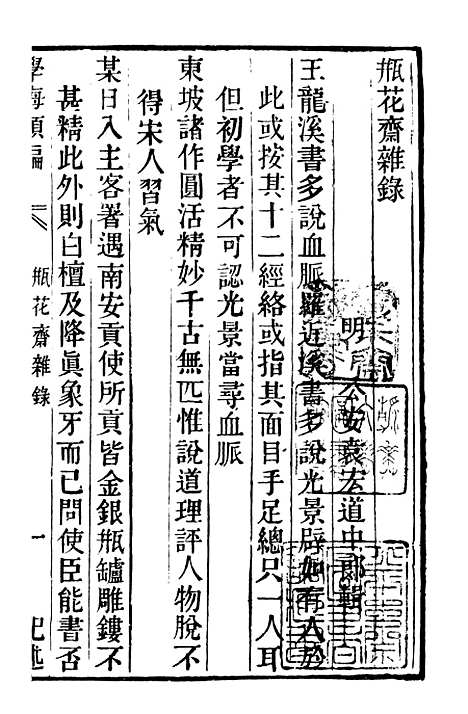 瓶花齋雜錄
明 公安袁宏道中郎輯
王龍溪書多說血脈羅近溪書多說光景辟如有人於
此或按其十二經絡或指其面目手足總只一人耳
但初學者不可認光景當尋血脈
東坡諸作圓活精妙千古無匹惟說道理評人物脫不
得宋人習氣
某日入主客署遇南安貢使所貢皆金銀瓶罏雕鏤不
甚精此外則白檀及降眞象牙而已問使臣能書否
學海類編
瓶花齋雜錄
一
記述